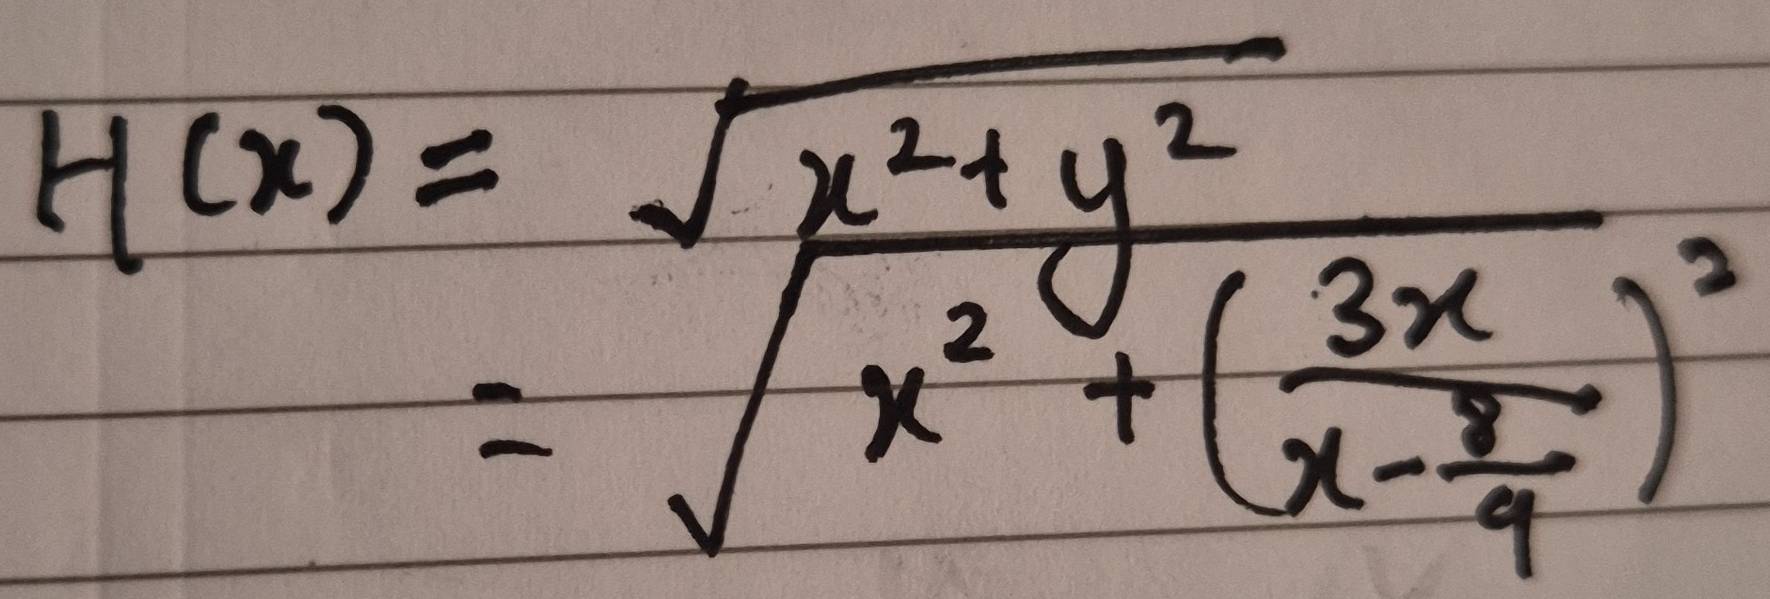 H(x) = √(x² + y²)
= √(x² + (3x / (x - 8/9))²)